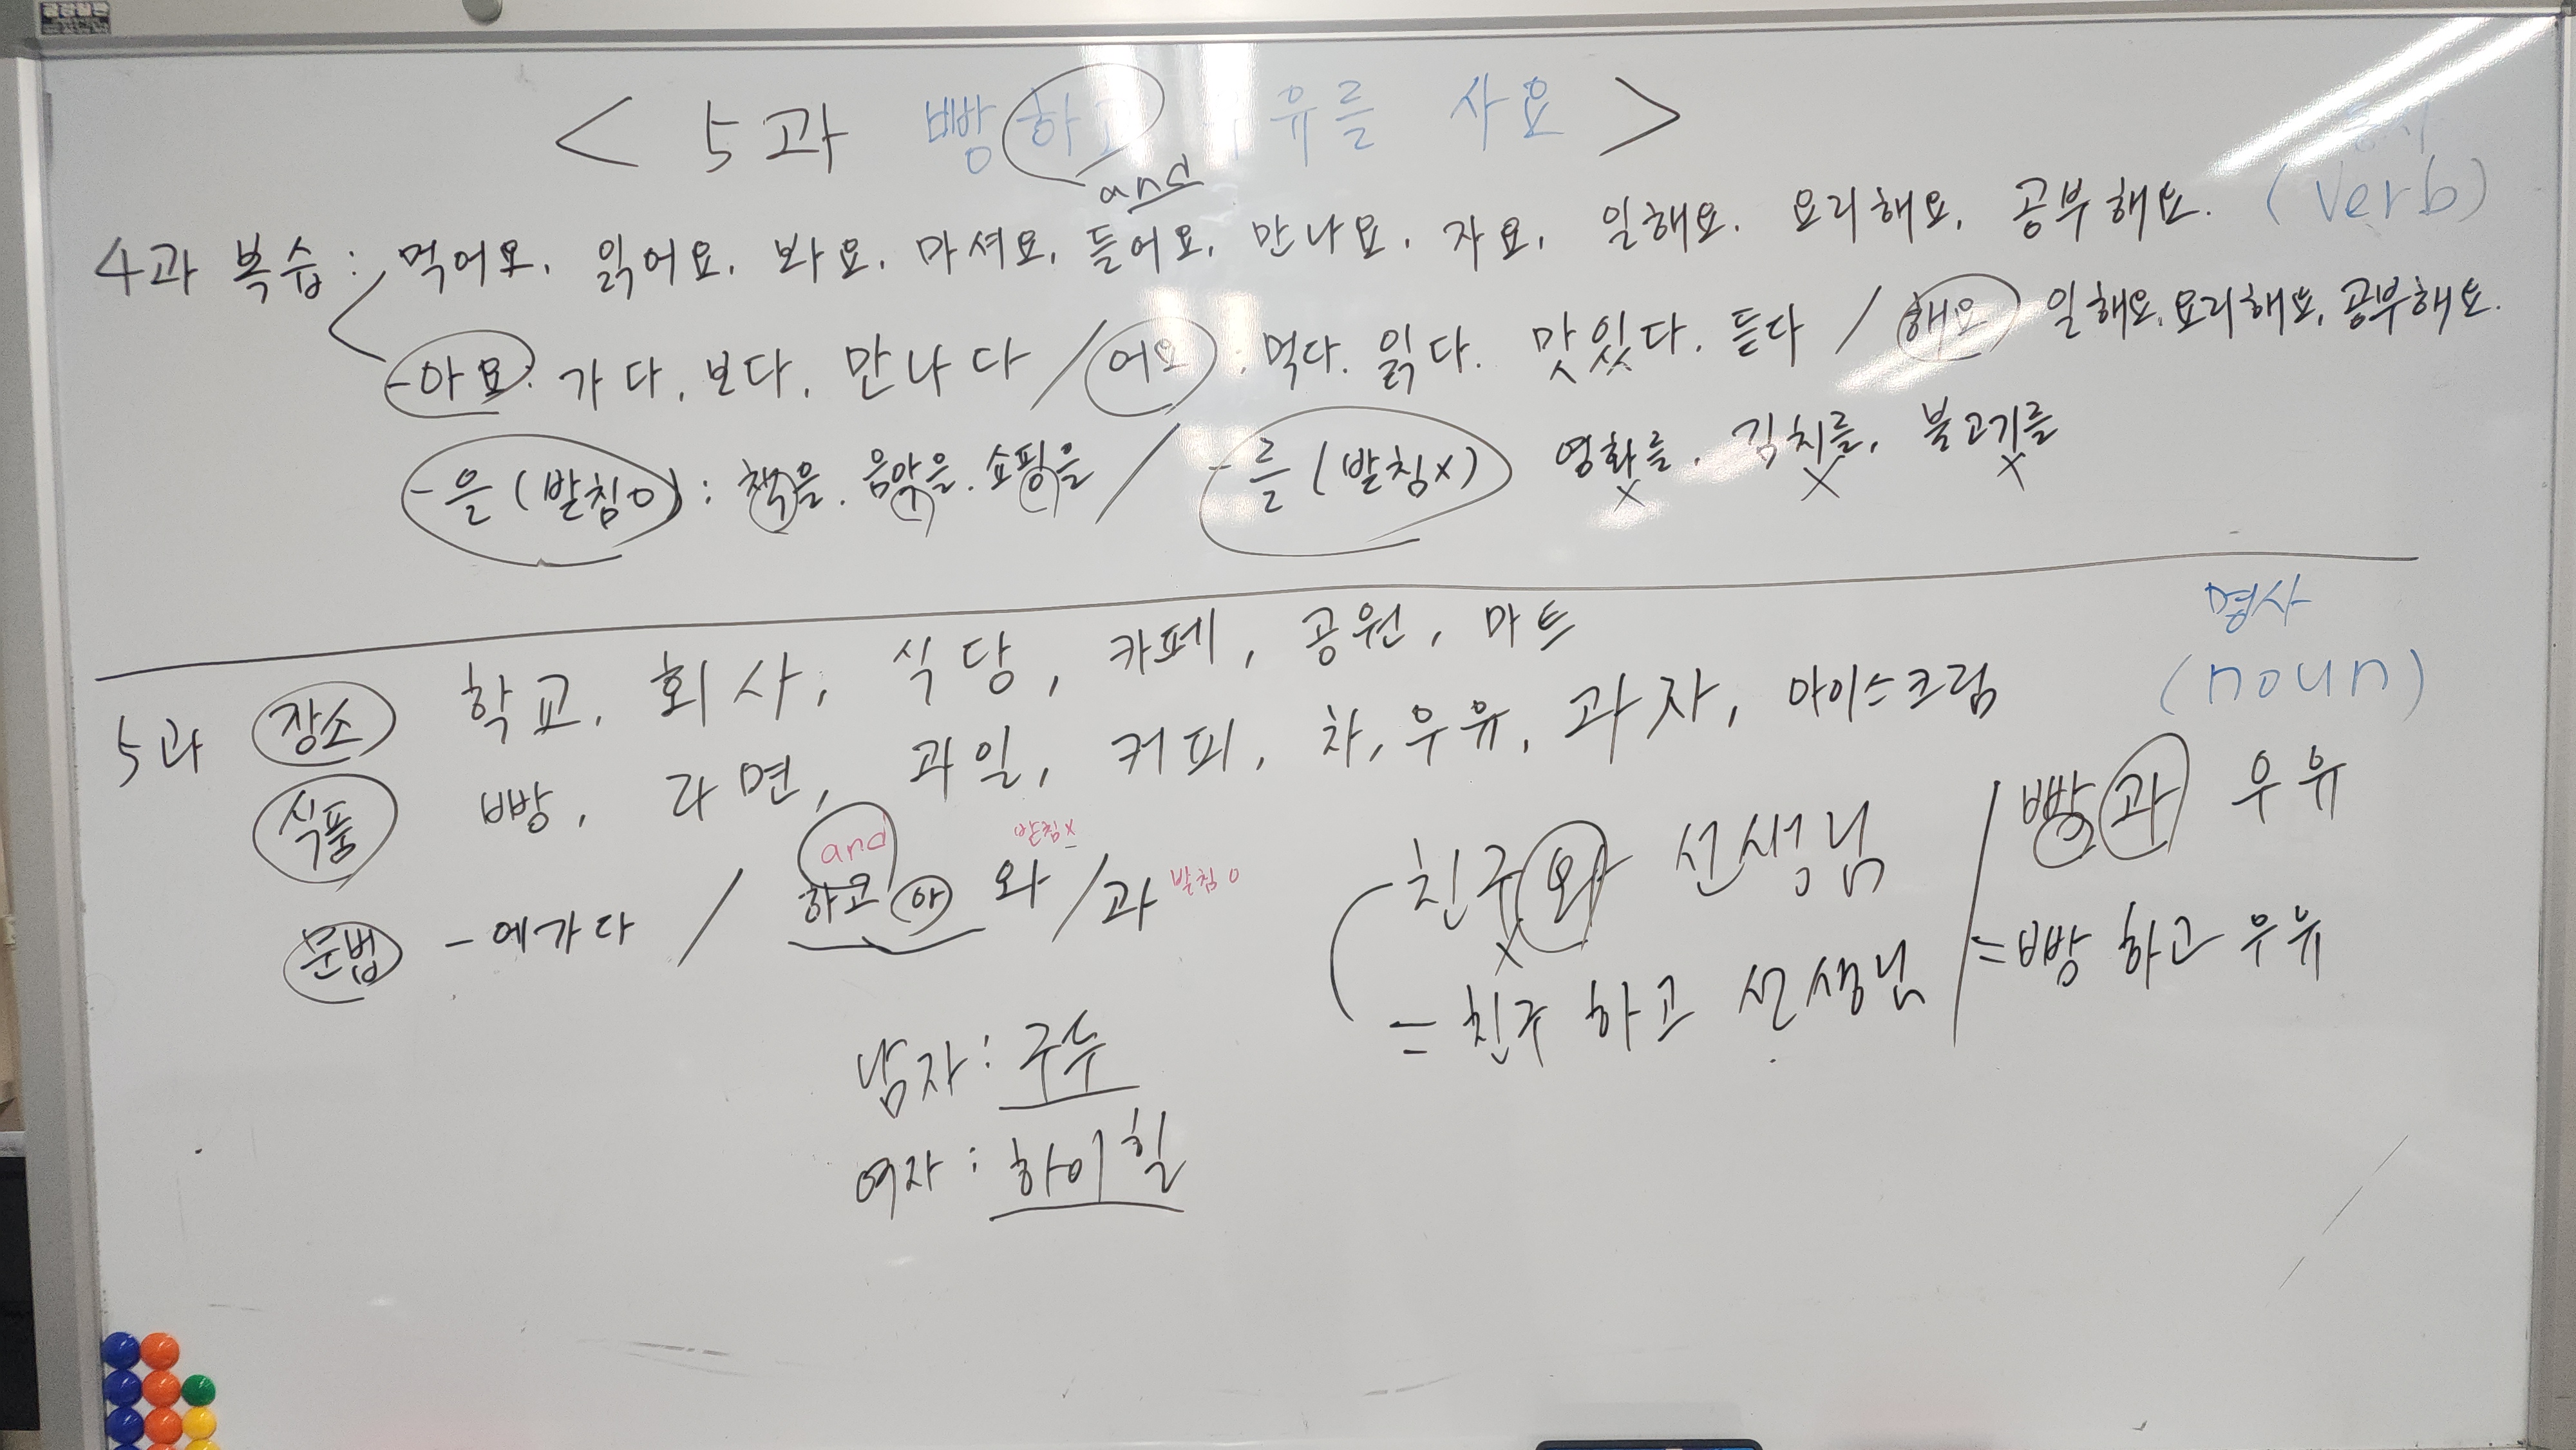 < 5과 빵하고 우유를 사요 >
and
동사
(verb)
4과 복습 : 먹어요. 읽어요. 봐요. 마셔요. 들어요. 만나요. 자요. 일해요. 요리해요. 공부해요.
-아요. 가다. 보다. 만나다 / 어요 : 먹다. 읽다. 맛있다. 듣다 / 해요 일해요. 요리해요. 공부해요.
-을 (받침o) : 책을. 음악을. 쇼핑을 / -를 (발침x) 영화를. 김치를, 불고기를
x x x
명사
(noun)
5과 장소 학교, 회사, 식당, 카페, 공원, 마트
식품 빵, 라면, 과일, 커피, 차, 우유, 과자, 아이스크림
and 받침x
문법 -에가다 / 하고 와 / 과 받침o
친구와 선생님 / 빵과 우유
x
= 친구 하고 선생님 = 빵 하고 우유
남자 : 구두
여자 : 하이힐